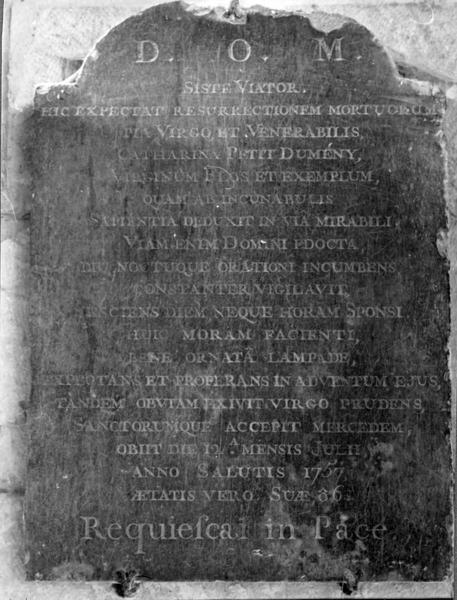 D. O. M.
SISTE VIATOR.
HIC EXPECTAT RESURRECTIONEM MORTUORUM
PIA VIRGO ET VENERABILIS,
CATHARINA PETIT DUMÉNY,
VIRGINUM FLOS ET EXEMPLUM,
QUAM AB INCUNABULIS
SAPIENTIA DEDUXIT IN VIÂ MIRABILI.
VIAM ENIM DOMINI EDOCTA
DIU NOCTUQUE ORATIONI INCUMBENS
CONSTANTER VIGILAVIT,
NESCIENS DIEM NEQUE HORAM SPONSI.
HUIC MORAM FACIENTI,
BENE ORNATÂ LAMPADE,
EXPECTANS ET PROPERANS IN ADVENTUM EJUS,
TANDEM OBVIAM EXIVIT VIRGO PRUDENS
SANCTORUMQUE ACCEPIT MERCEDEM
OBIIT DIE 12.A MENSIS JULII
ANNO SALUTIS 1757
ÆTATIS VERO SUÆ 86.
Requiescat in Pace